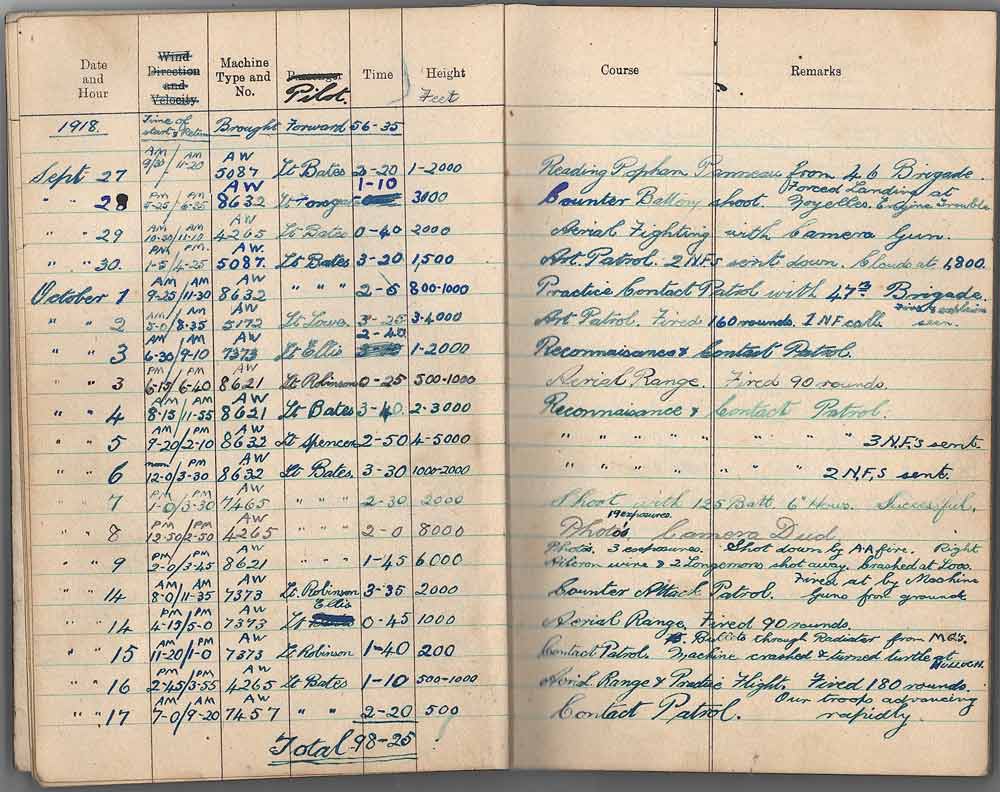 Date and Hour Wind Direction and Velocity Machine Type and No. Passenger Pilot. Time Height Feet Course Remarks
1918. Time of start & Return Brought Forward 56-35
Sept 27 AM 9/30 / AM 11-20 AW 5087 Lt Bates 2-20 1-2000 Reading Pophan Panneau from 46 Brigade.
" " 28 PM 5-25 / PM 6-35 AW 8632 Lt 1-10 3000 Counter Battery shoot. Forced Landing at Noyelles. Engine Trouble
" " 29 AM 10-30 / AM 11-10 AW 4265 Lt Bates 0-40 2000 Aerial Fighting with Camera Gun.
" " 30. PM 1-5 / PM. 4-25 AW. 5087. Lt Bates 3-20 1,500 Art Patrol. 2 N.F.s sent down. Clouds at 1,800.
October 1 AM 9-25 / AM 11-30 AW 8632 " " " 2-5 800-1000 Practice Contact Patrol with 47th Brigade.
" " 2 AM 5-0 / AM 8-35 AW 5172 Lt Lowe 3-25 3-4000 Art Patrol. Fired 160 rounds. 1 NF call. Fires & explosions seen.
" " 3 AM 6-30 / AM 9-10 AW 7373 Lt Ellis 2-40 1-2000 Reconnaisance & Contact Patrol.
" " 3 PM 6-15 / PM 6-40 AW 8621 Lt Robinson 0-25 500-1000 Aerial Range. Fired 90 rounds.
" " 4 AM 8-15 / AM 11-55 AW 8621 Lt Bates 3-40. 2-3000 Reconnaisance & Contact Patrol.
" " 5 AM 9-20 / PM 2-10 AW 8632 Lt Spencer 2-50 4-5000 " " " " " " " 3 N.F.s sent.
" " 6 noon 12-0 / PM 3-30 AW 8632 Lt Bates. 3-30 1000-2000 " " " " " " 2 N.F,s sent.
" 7 PM 1-0 / PM 3-30 AW 7465 " " " 2-30 2000 Shoot with 125 Batt. 6" Hows. Successful.
" 8 PM 12-50 / PM 2-50 AW 4265 " " " 2-0 8000 Photo's. 19 exposures. Camera Dud.
" " 9 PM 2-0 / PM 3-45 AW 8621 " " " 1-45 6000 Photo's. 3 exposures. Shot down by A.A fire. Right
Aileron wire & 2 Longerons shot away. Crashed at Loos.
" " 14 AM 8-0 / AM 11-35 AW 7373 Lt. Robinson 3-35 2000 Counter Attack Patrol. Fired at by Machine Guns from ground
" " 14 PM 4-15 / PM 5-0 AW 7373 Lt Ellis 0-45 1000 Aerial Range. Fired 90 rounds.
" " 15 AM 11-20 / PM 1-0 AW 7373 Lt Robinson 1-40 200 Contact Patrol. Bullets through Radiator from M.G.s. Machine crashed & turned turtle at HULLUCH.
" " 16 PM 2-45 / PM 3-55 AW 4265 Lt Bates 1-10 500-1000 Aerial Range & Practice Flight. Fired 180 rounds.
" " 17 AM 7-0 / AM 9-20 AW 7457 " " 2-20 500 Contact Patrol. Our troops advancing rapidly.
Total 98-25